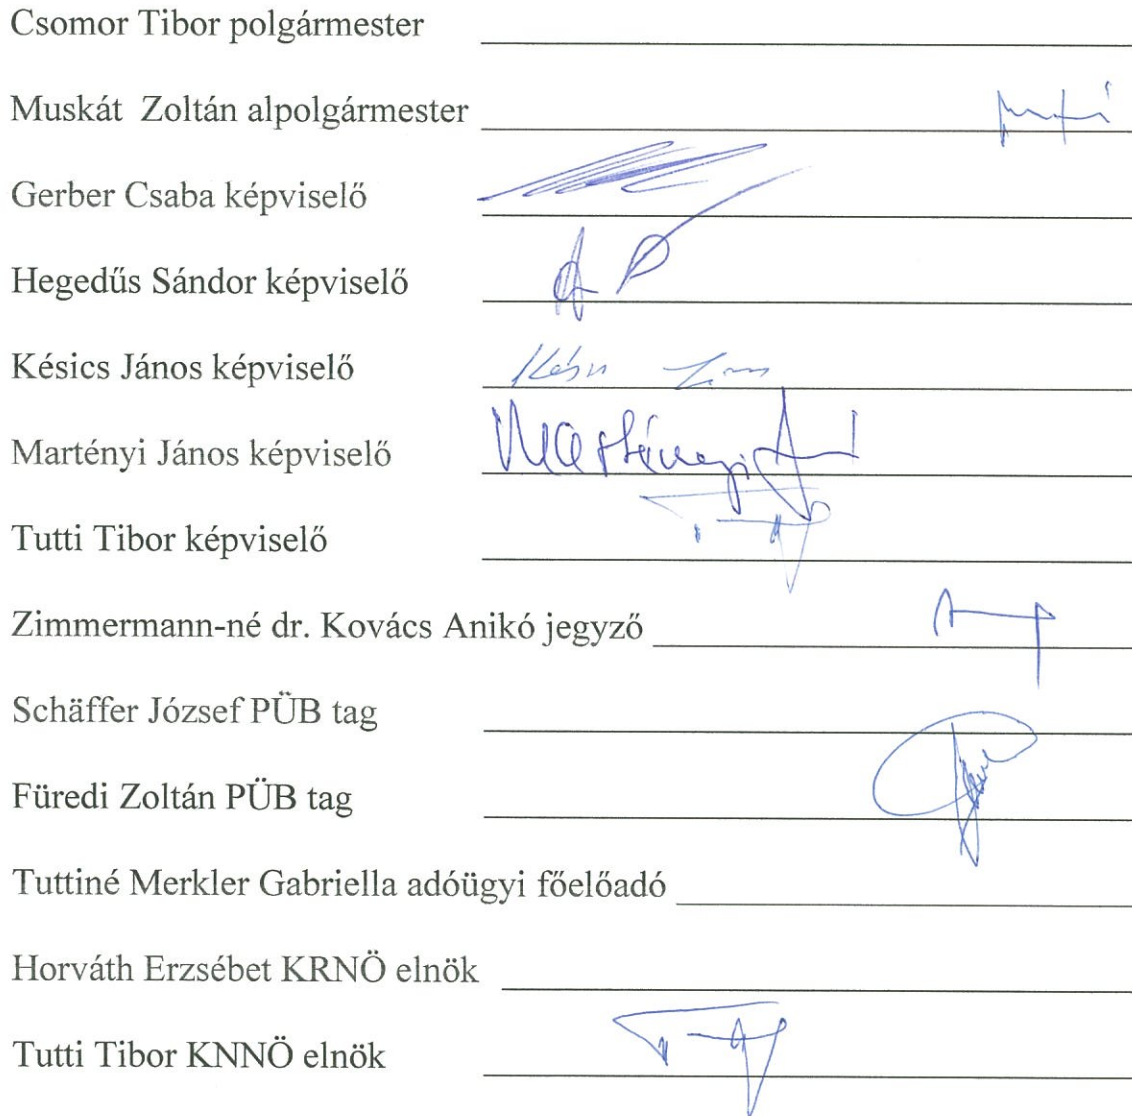 Csomor Tibor polgármester
Muskát Zoltán alpolgármester
Gerber Csaba képviselő
Hegedűs Sándor képviselő
Késics János képviselő
Martényi János képviselő
Tutti Tibor képviselő
Zimmermann-né dr. Kovács Anikó jegyző
Schäffer József PÜB tag
Füredi Zoltán PÜB tag
Tuttiné Merkler Gabriella adóügyi főelőadó
Horváth Erzsébet KRNÖ elnök
Tutti Tibor KNNÖ elnök